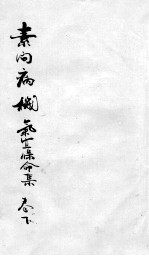 素问病機氣宜保命集 卷下